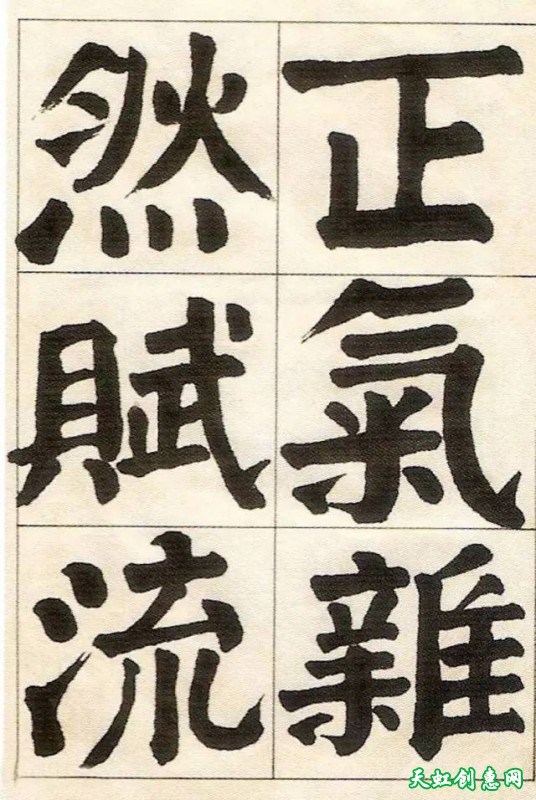 正氣雜
然賦流
天虹创意网